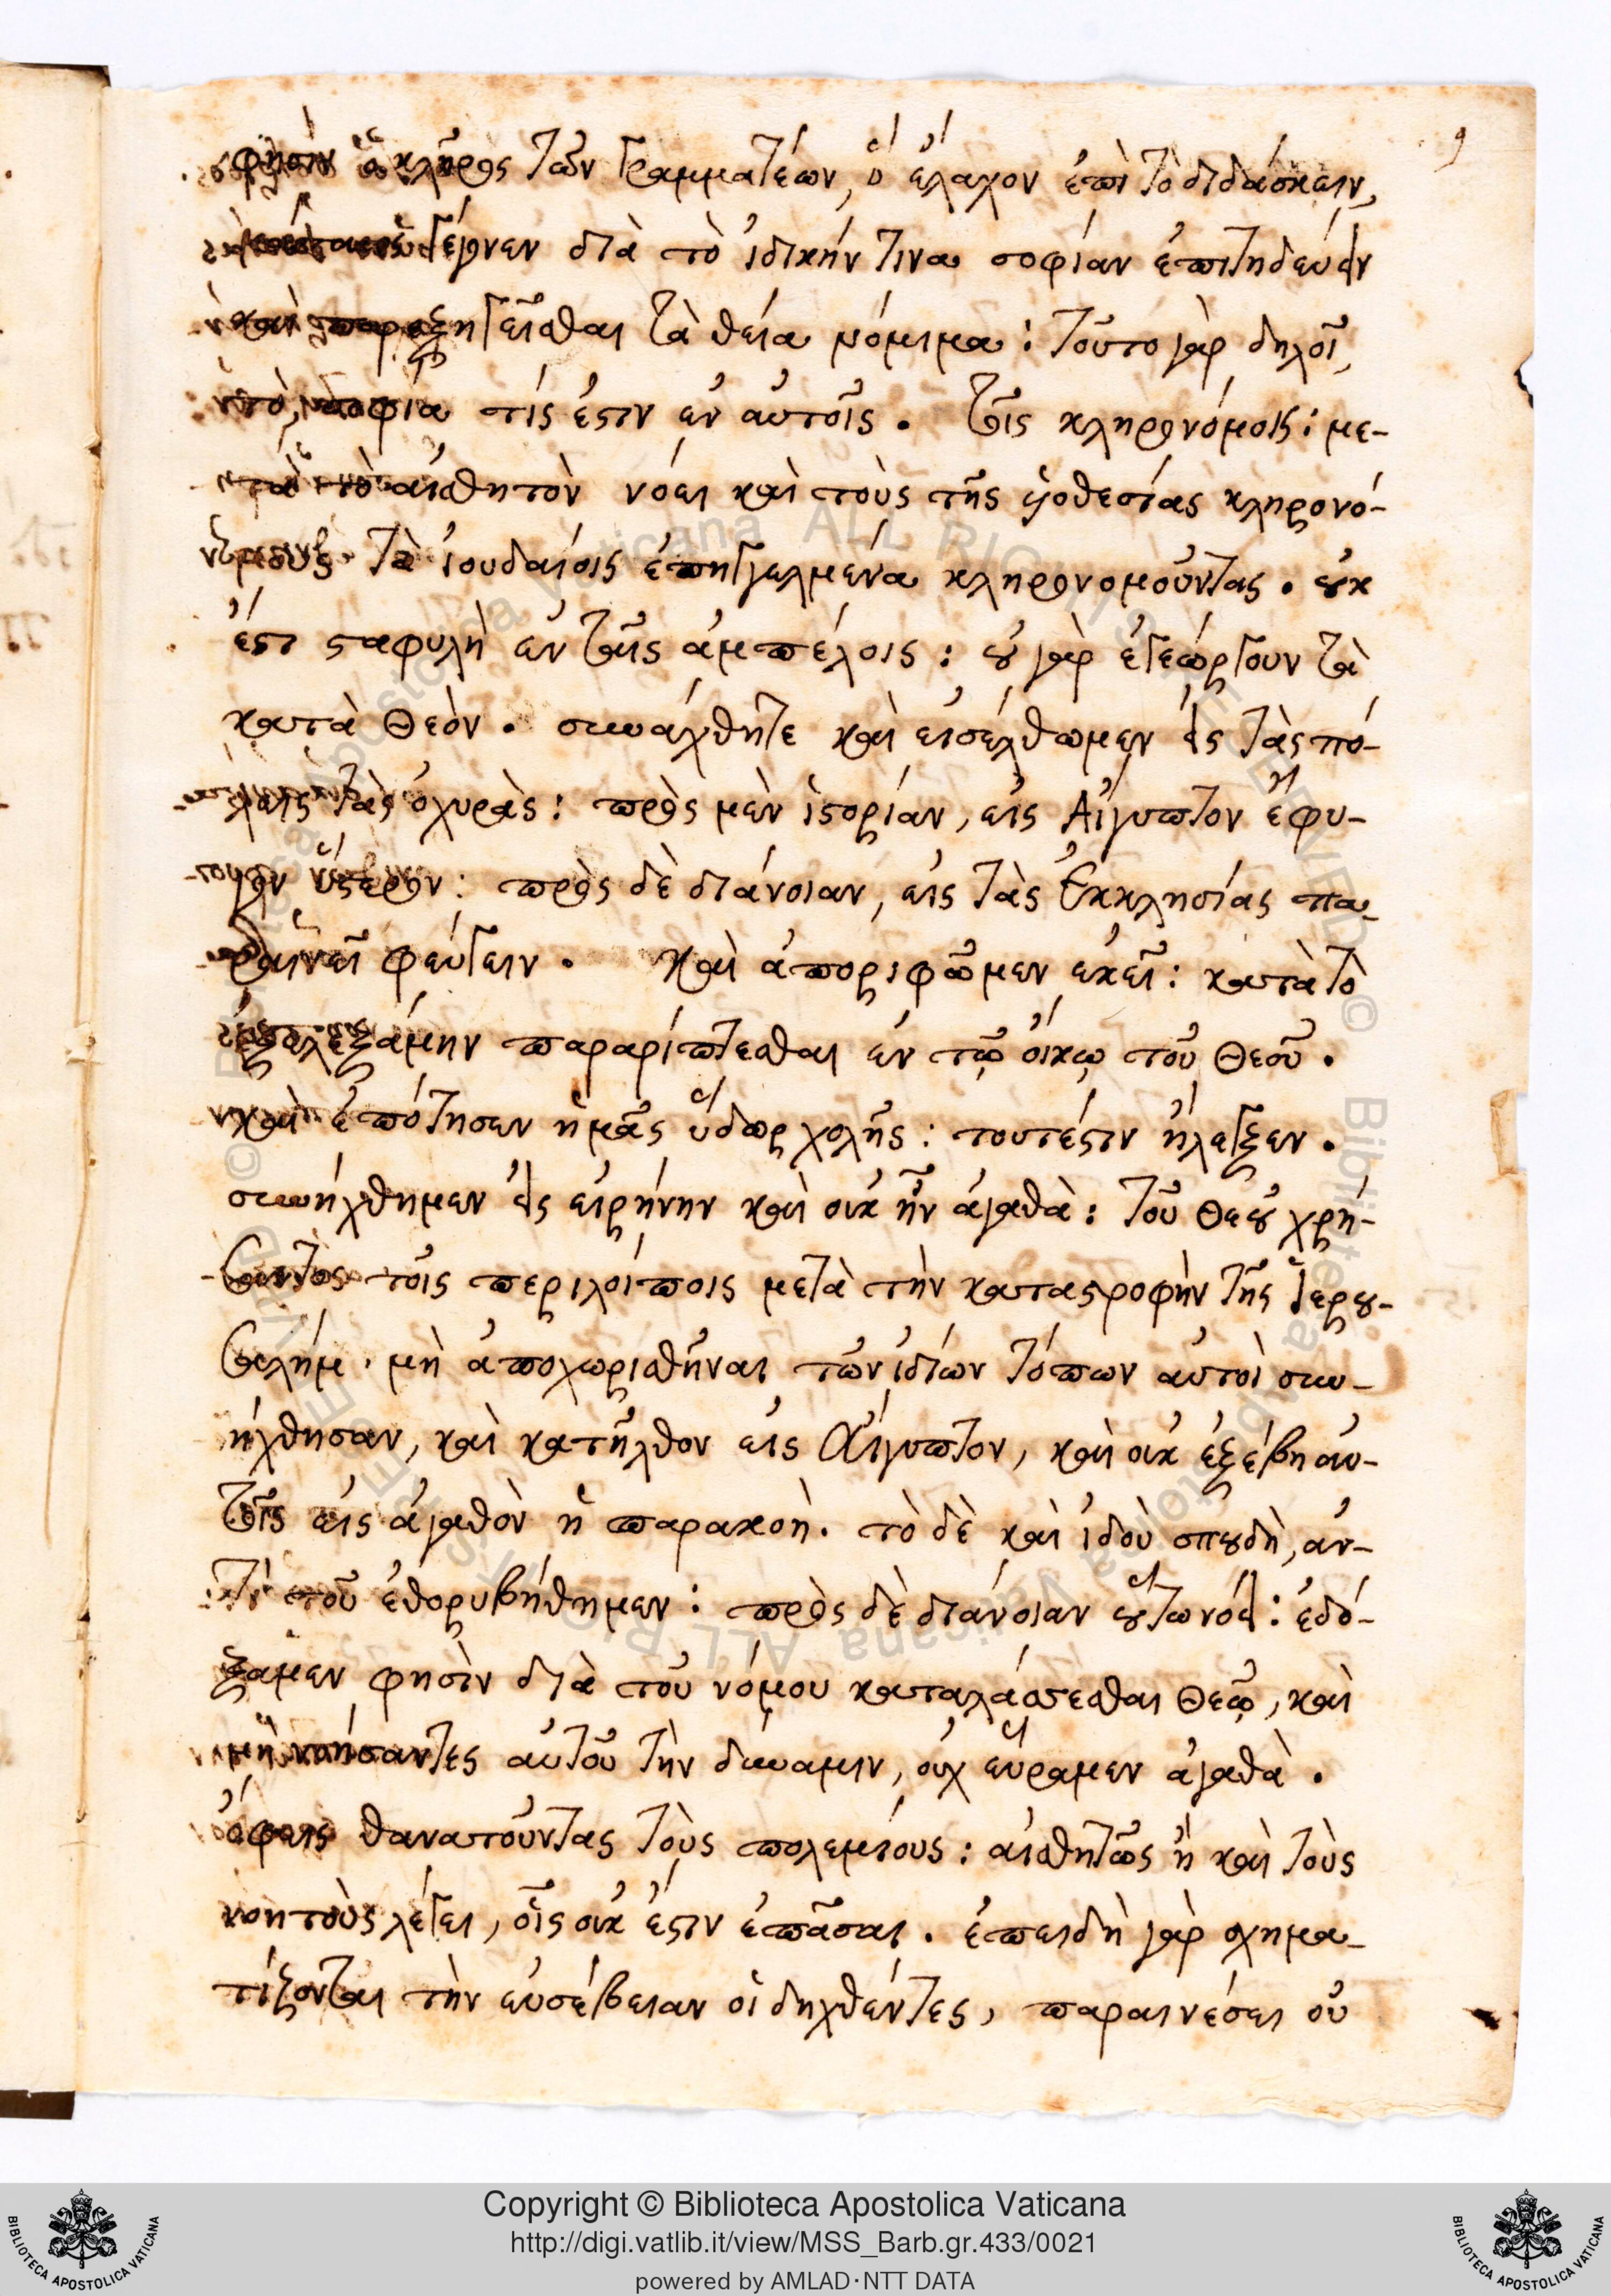 9
φησὶν ὁ κλῆρος τῶν γραμματέων, ὃ ἔλαχον ἐπὶ τὸ διδάσκειν,
γέγονεν διὰ τὸ ἰδικήν τινα σοφίαν ἐπιτηδεύειν
καὶ παρεξηγεῖσθαι τὰ θεῖα νόμιμα: τοῦτο γὰρ δηλοῖ,
τὸ, σοφία τίς ἐστιν ἐν αὐτοῖς. τοῖς κληρονόμοις: με-
τὰ τὸ αἰσθητὸν νόει καὶ τοὺς τῆς υἱοθεσίας κληρονό-
μους τὰ ἰουδαίοις ἐπηγγελμένα κληρονομοῦντας. οὐκ
ἔστι σταφυλὴ ἐν ταῖς ἀμπέλοις: οὐ γὰρ ἐγεώργουν τὰ
κατὰ Θεόν. συνάχθητε καὶ εἰσέλθωμεν εἰς τὰς πό-
λεις τὰς ὀχυρὰς: πρὸς μὲν ἱστορίαν, εἰς Αἴγυπτον ἔφυ-
γον ὕστερον: πρὸς δὲ διάνοιαν, εἰς τὰς Ἐκκλησίας πα-
ραινεῖ φεύγειν. καὶ ἀποριφῶμεν ἐκεῖ: κατὰ τὸ
ἐξελεξάμην παραρίπτεσθαι ἐν τῷ οἴκῳ τοῦ Θεοῦ.
καὶ ἐπότησεν ἡμᾶς ὕδωρ χολῆς: τουτέστιν ἤλεγξεν.
συνήχθημεν εἰς εἰρήνην καὶ οὐκ ἦν ἀγαθὰ: τοῦ Θεοῦ χρή-
σαντος τοῖς περιλοίποις μετὰ τὴν καταστροφὴν τῆς Ἱερου-
σαλήμ. μὴ ἀποχωρισθῆναι τῶν ἰδίων τόπων αὐτοὶ συν-
ήχθησαν, καὶ κατῆλθον εἰς Αἴγυπτον, καὶ οὐκ ἐξέβη αὐ-
τοῖς εἰς ἀγαθὸν ἡ παρακοὴ. τὸ δὲ καὶ ἰδοὺ σπουδὴ, ἀν-
τὶ τοῦ ἐθορυβήθημεν: πρὸς δὲ διάνοιαν οὕτω νόει: ἐδό-
ξαμεν φησὶν διὰ τοῦ νόμου καταλάσσεσθαι Θεῷ, καὶ
μὴ νοήσαντες αὐτοῦ τὴν δύναμιν, οὐχ εὕραμεν ἀγαθὰ.
ὄφεις θανατοῦντας τοὺς πολεμίους: αἰσθητῶς ἢ καὶ τοὺς
νοητοὺς λέγει, οἷς οὐκ ἔστιν ἐπᾶσαι. ἐπειδὴ γὰρ σχημα-
τίζονται τὴν εὐσέβειαν οἱ δηχθέντες, παραινέσει οὐ
Copyright © Biblioteca Apostolica Vaticana
http://digi.vatlib.it/view/MSS_Barb.gr.433/0021
powered by AMLAD·NTT DATA
BIBLIOTECA APOSTOLICA VATICANA
BIBLIOTECA APOSTOLICA VATICANA